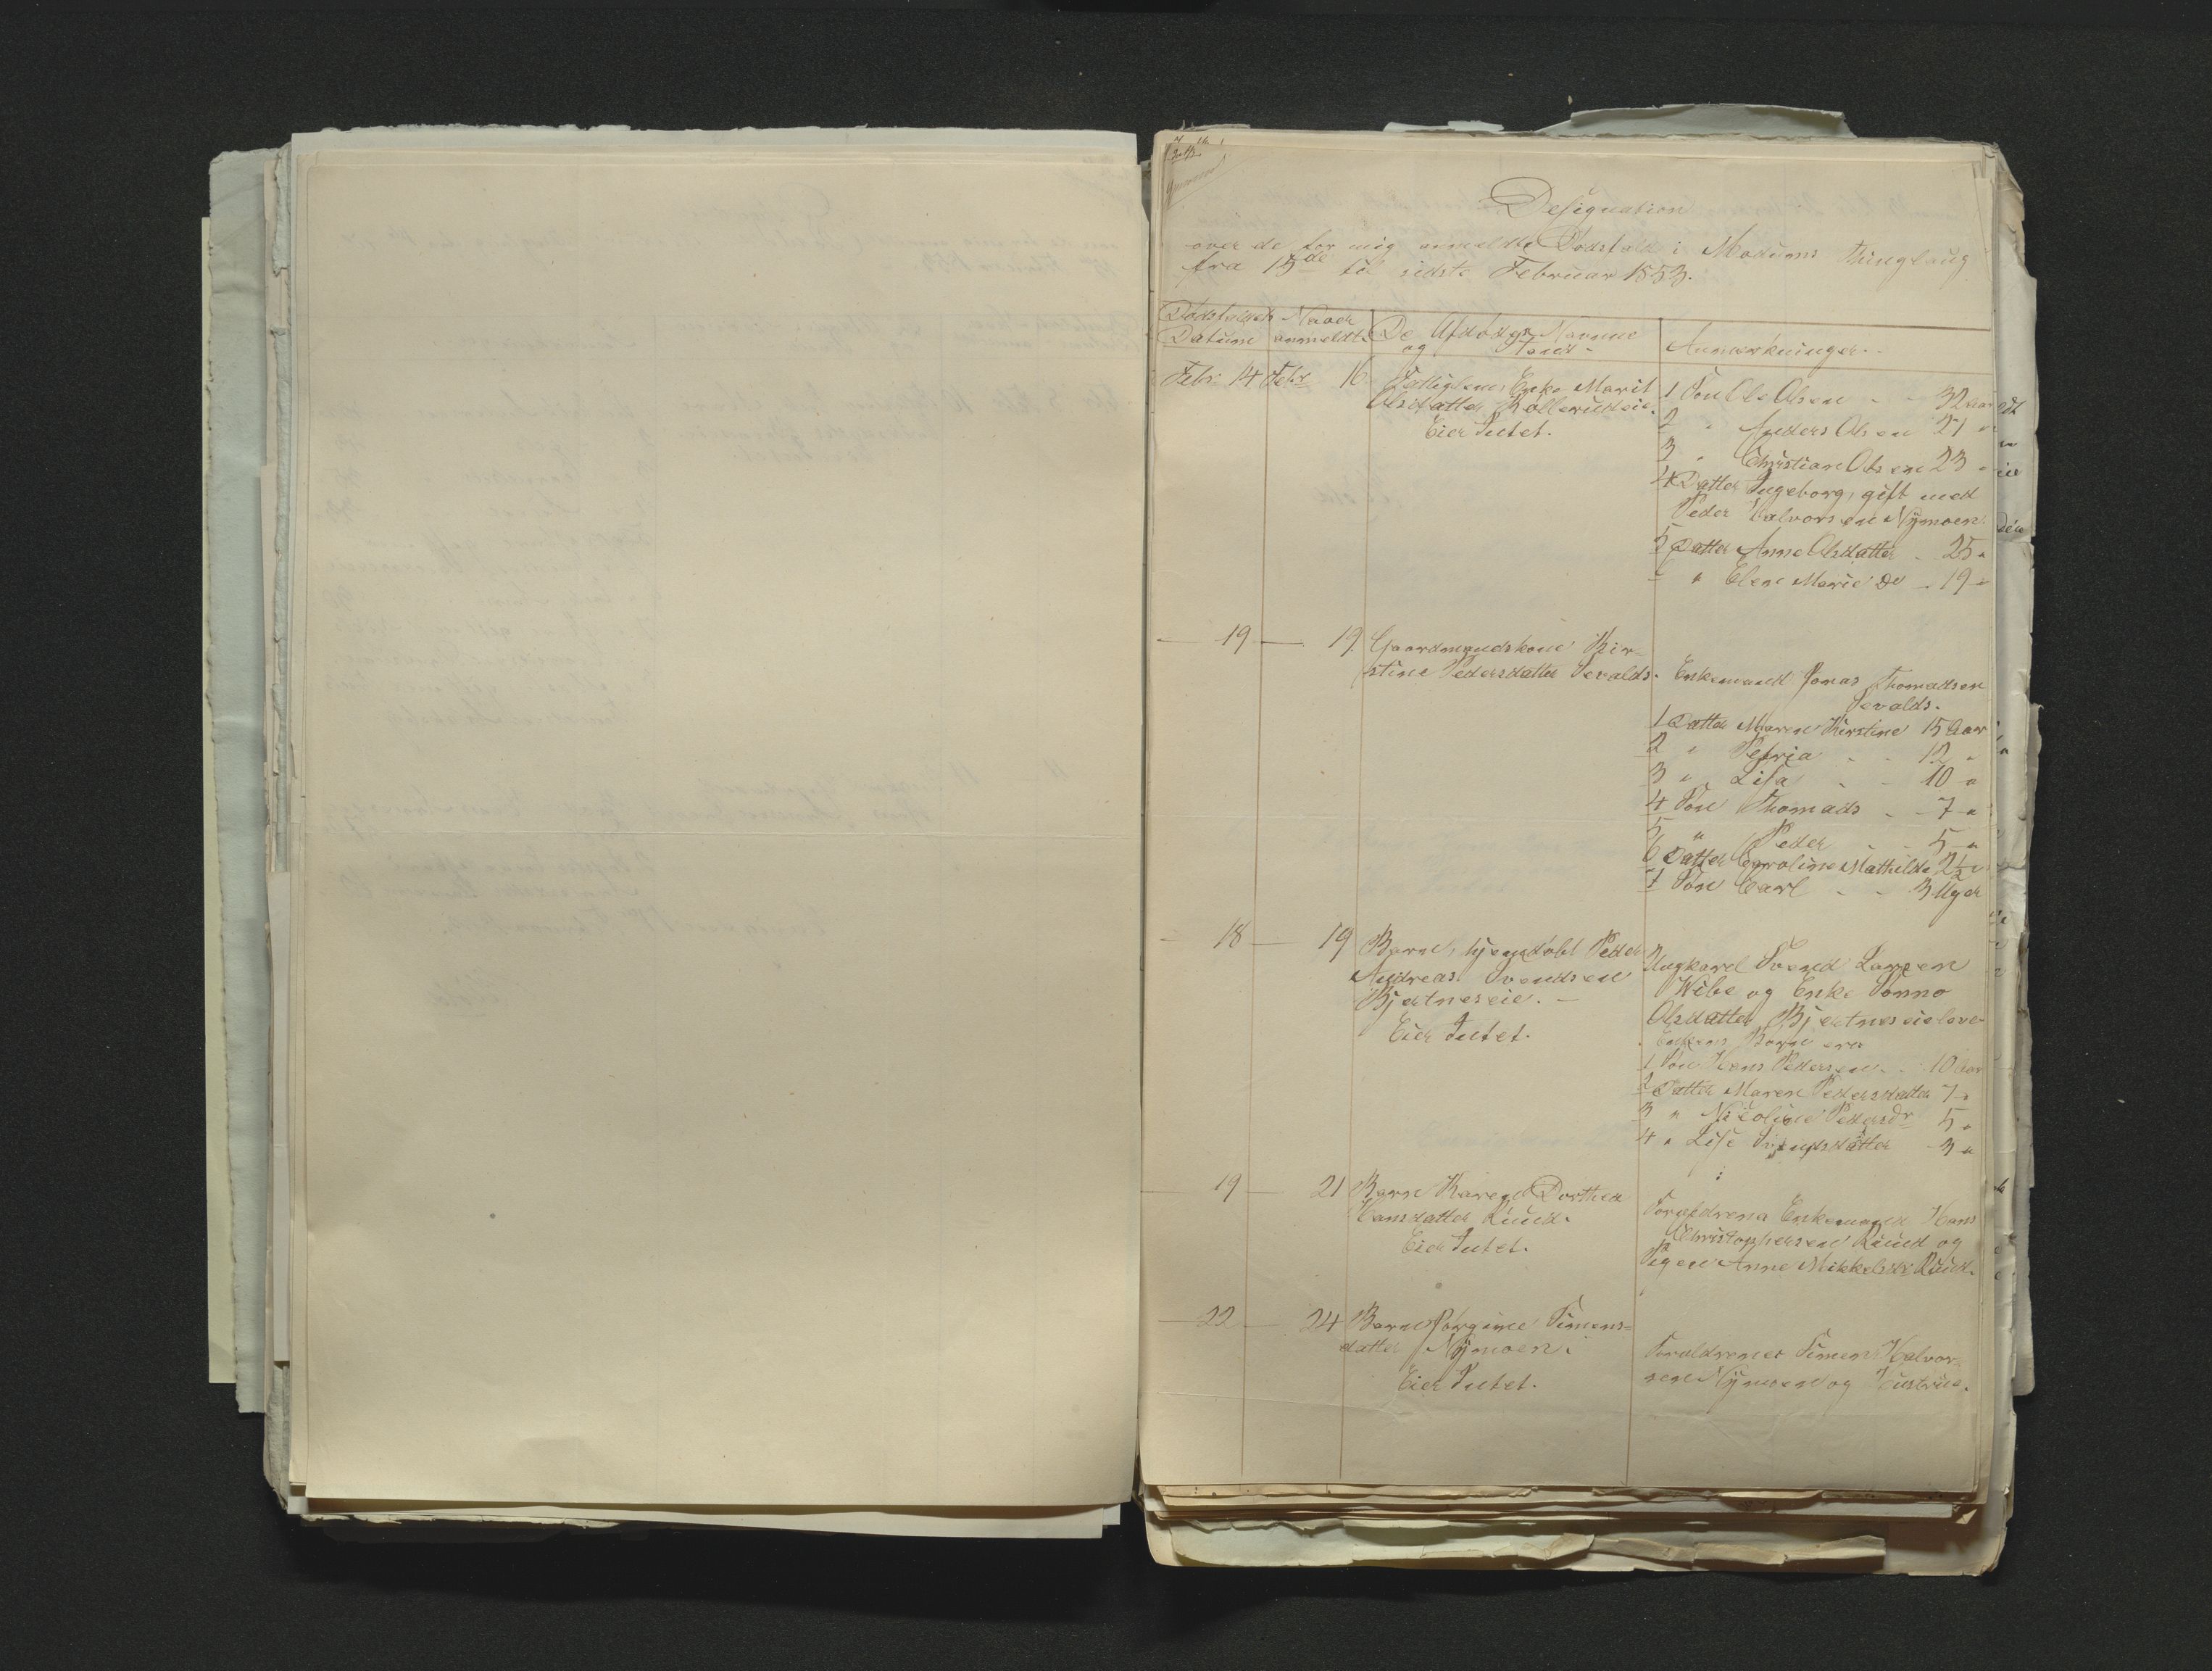 Designation
over de for mig anmeldte Dødsfald i Modums Thinglaug
fra 15de til sidste Februar 1853.
Dødsfaldets Datum
Naar anmeldt.
De Afdødes Navne og Stand.
Anmærkninger.
Febr. 14 Febr 16 Fattiglems Enke Marit
Olsdatter Kollerudeie.
Eier Intet.
1 Søn Ole Olsen - - 32 Aar
2 " Anders Olsen 21 "
3 " Christian Olsen 23 "
4 Datter Ingeborg, gift med
Peder Halvorsen Nÿmoen.
5 Datter Anne Olsdatter - 25 "
" Elen Marie Do - 19 "
— 19 — 19. Gaardmandskone Kir-
stine Pedersdatter Sevalds.
Enkemand Jonas Thomadsen
Sevalds.
1 Datter Maren Kirstine 15 Aar
2 " Petria - - 12 "
3 " Lisa - - 10 "
4 Søn Thomads - - 7 "
5 " Peder - - 5 "
6 Datter Caroline Mathilde 2½ "
7 Søn Carl - - 3 Uger
- 18 — 19 Barn, hjemdøbt Peder
Andreas Svendsen
Bjertneseie. —
Eier Intet.
Ungkarl Svend Larsen
Wibe og Enke
Olsdatter Bjertneseie
Enkens Børn ere
1 Søn Hans Pedersen - - 10 Aar
2 Datter Maren Pedersdatter 7 "
3 " Nicoline Pedersdr 5 "
4 " Lise Svendsdatter - 3 "
— 19 — 21 Barn Karen Dorthea
Hansdatter Ruud.
Eier Intet.
Forældrene Enkemand Hans
Christophersen Ruud og
Pigen Anne Mikkelsdr Ruud.
— 22 — 24 Barn Jørgine Simens=
datter Nÿmoen.
Eier Intet.
Forældrene Simen Halvor-
sen Nÿmoen og Hustrue.